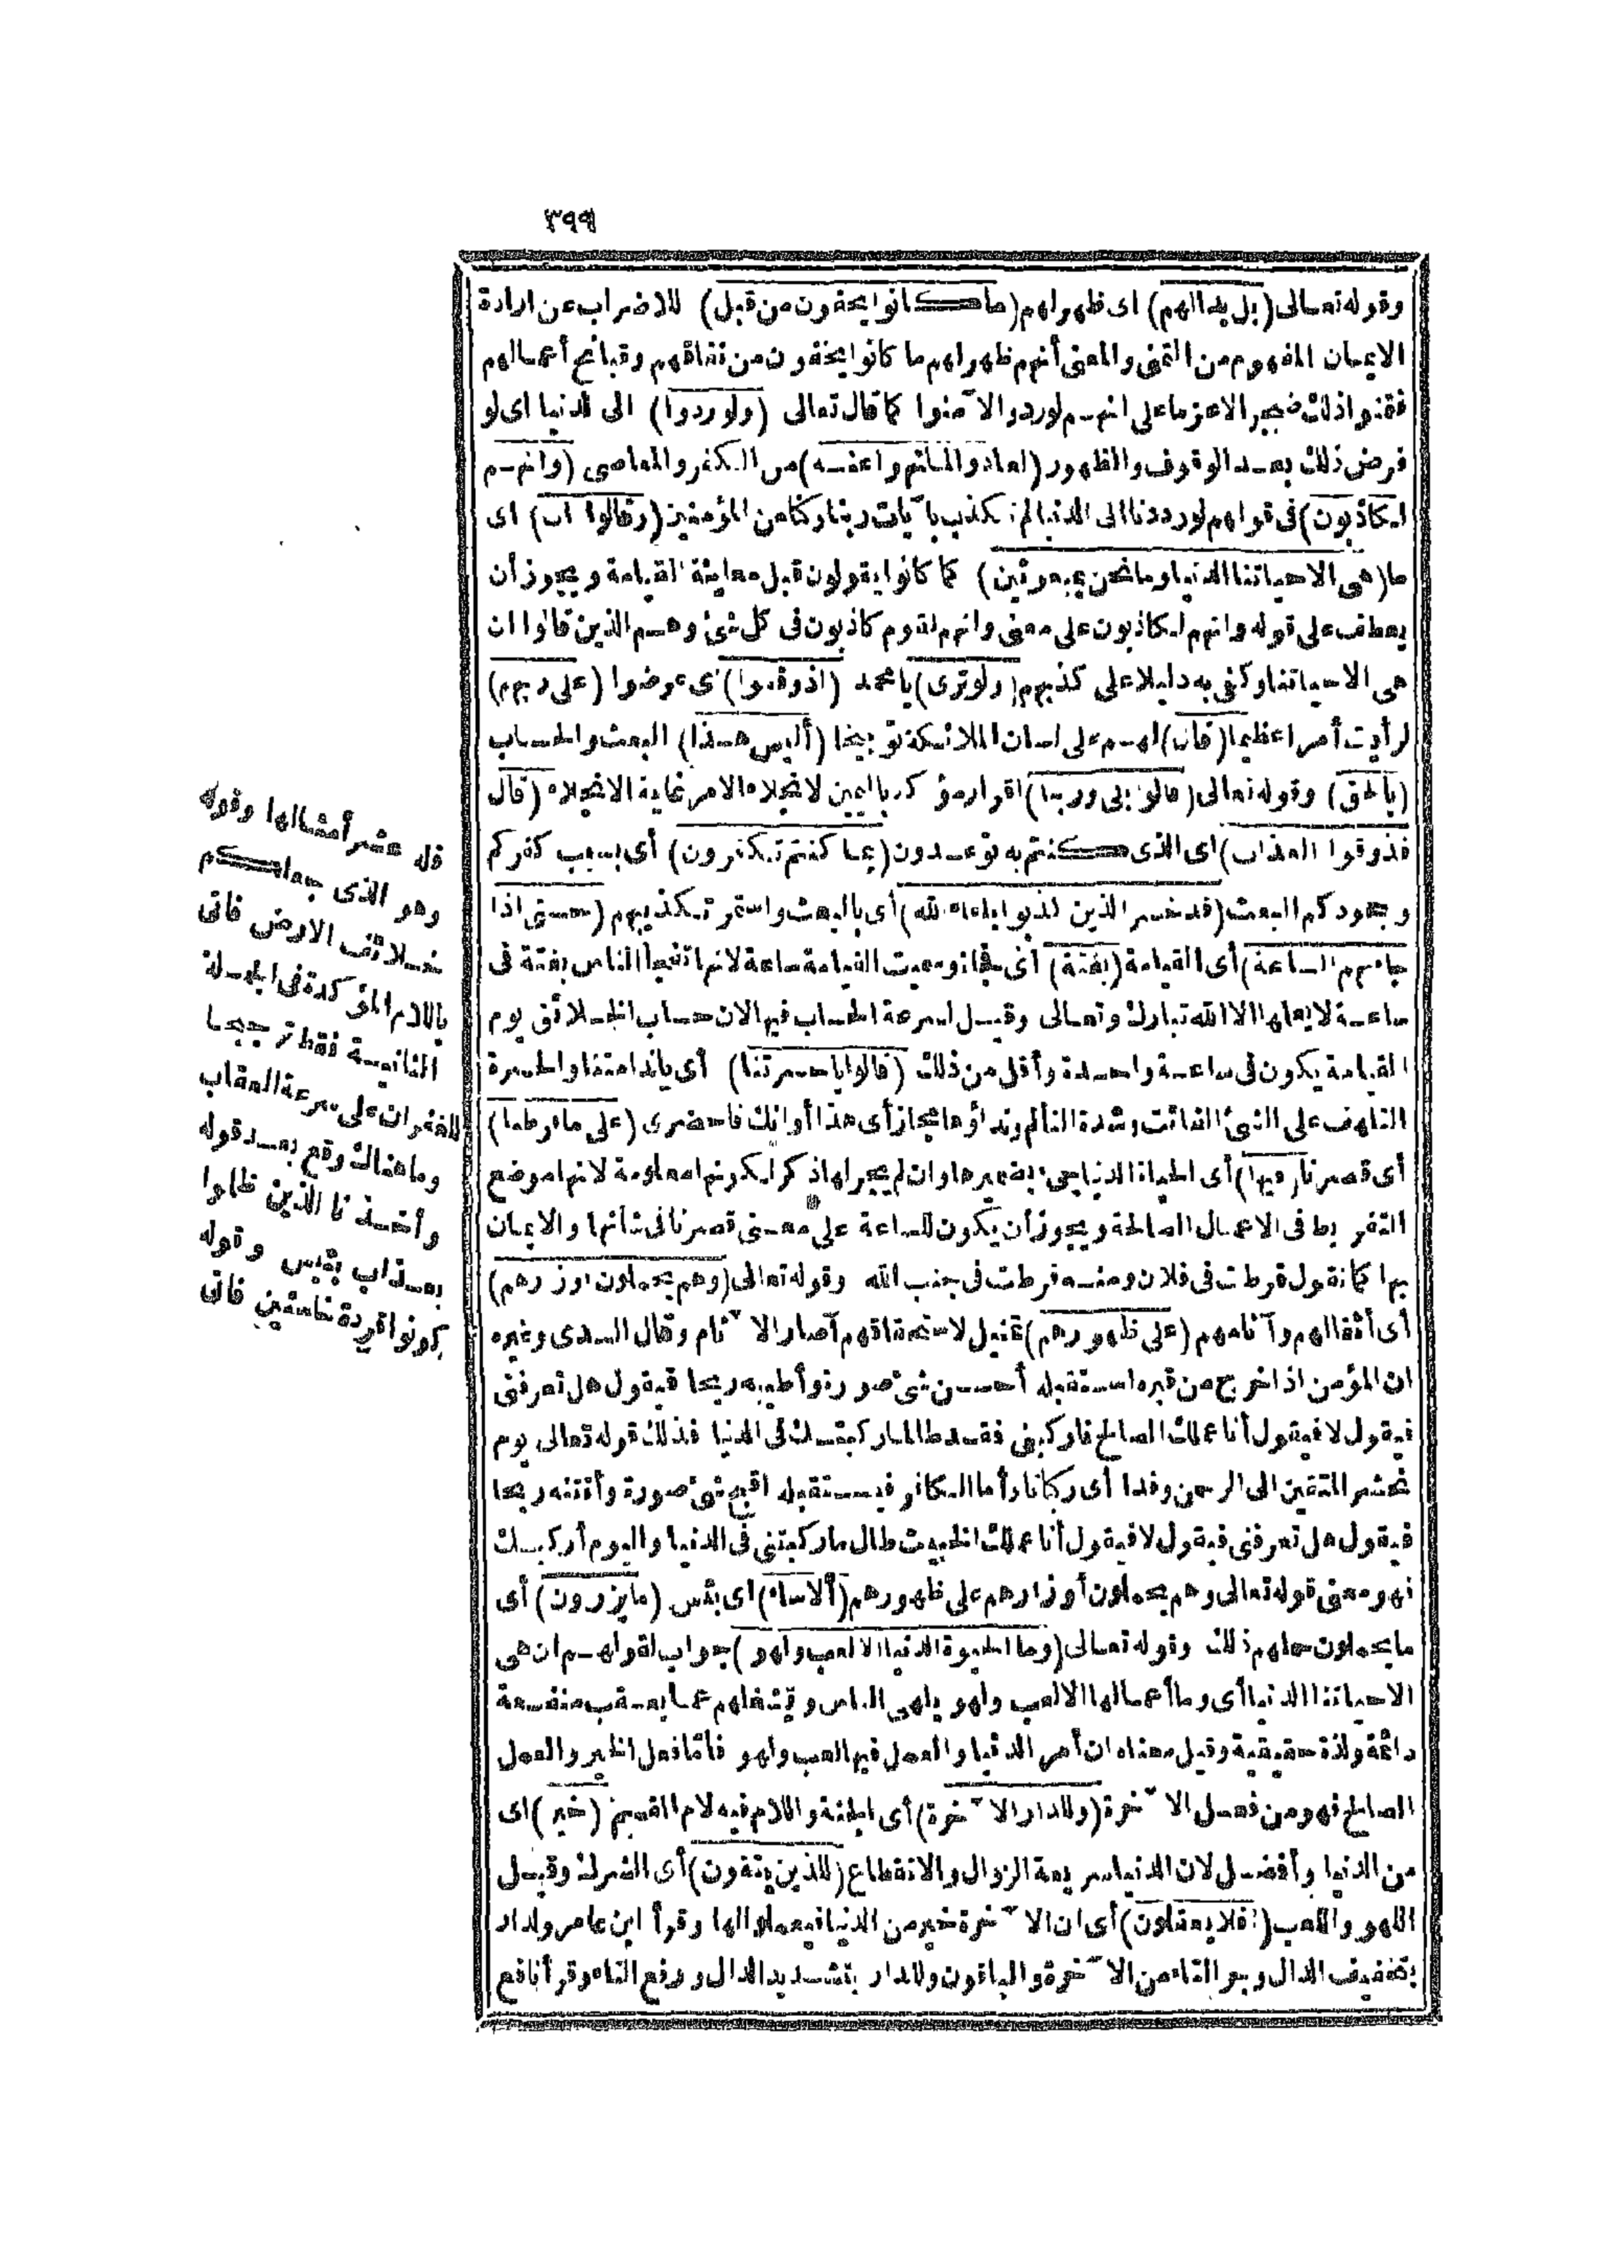 ٣٩٩
وقوله تعالى (بل بدا لهم) اى ظهر لهم (ما كانوا يخفون من قبل) للاضراب عن ارادة
الايمان المفهوم من التمنى والمعنى أنهم ظهر لهم ما كانوا يخفون من نفاقهم وقبائح أعمالهم
فتمنوا ذلك ضجرا لا عزما على انهم لو ردوا لآمنوا كما قال تعالى (ولو ردوا) الى الدنيا اى لو
فرض ذلك بعد الوقوف والظهور (لعادوا لما نهوا عنه) من الكفر والمعاصى (وانهم
لكاذبون) فى قولهم لو رددنا الى الدنيا لم نكذب بآيات ربنا وكنا من المؤمنين (وقالوا ان) اى
ما (هى الا حياتنا الدنيا وما نحن بمبعوثين) كما كانوا يقولون قبل معاينة القيامة ويجوز أن
يعطف على قوله وانهم لكاذبون على معنى وانهم لقوم كاذبون فى كل شئ وهم الذين قالوا ان
هى الا حياتنا وكفى به دليلا على كذبهم (ولو ترى) يا محمد (اذ وقفوا) اى عرضوا (على ربهم)
لرأيت أمرا عظيما (قال) لهم على لسان الملائكة توبيخا (أليس هذا) البعث والحساب
(بالحق) وقوله تعالى (قالوا بلى وربنا) اقرار مؤكد باليمين لانجلاء الامر غاية الانجلاء (قال
فذوقوا العذاب) اى الذى كنتم به توعدون (بما كنتم تكفرون) أى بسبب كفركم
وجحودكم البعث (قد خسر الذين كذبوا بلقاء الله) أى بالبعث واستمر تكذيبهم (حتى اذا
جاءتهم الساعة) أى القيامة (بغتة) أى فجأة وسميت القيامة ساعة لانها تفجأ الناس بغتة فى
ساعة لا يعلمها الا الله تبارك وتعالى وقيل لسرعة الحساب فيها لان حساب الخلائق يوم
القيامة يكون فى ساعة واحدة وأقل من ذلك (قالوا يا حسرتنا) أى يا ندامتنا والحسرة
التلهف على الشئ الفائت وشدة التألم ونداؤها مجاز أى هذا أوانك فاحضرى (على ما فرطنا)
أى قصرنا (فيها) أى الحياة الدنيا جىء بضميرها وان لم يجر لها ذكر لكونها معلومة لانها موضع
التفريط فى الاعمال الصالحة ويجوز أن يكون للساعة على معنى قصرنا فى شأنها والايمان
بها كما تقول فرطت فى فلان ومنه فرطت فى جنب الله وقوله تعالى (وهم يحملون اوزارهم)
أى أثقالهم وآثامهم (على ظهورهم) تمثيل لاستحقاقهم آصار الآثام وقال السدى وغيره
ان المؤمن اذا خرج من قبره استقبله أحسن شئ صورة وأطيبه ريحا فيقول هل تعرفنى
فيقول لا فيقول أنا عملك الصالح فاركبنى فقد طالما ركبتك فى الدنيا فذلك قوله تعالى يوم
نحشر المتقين الى الرحمن وفدا أى ركبانا وأما الكافر فيستقبله اقبح شئ صورة وأنتنه ريحا
فيقول هل تعرفنى فيقول لا فيقول أنا عملك الخبيث طال ما ركبتنى فى الدنيا واليوم أركبك
فهو معنى قوله تعالى وهم يحملون أوزارهم على ظهورهم (ألا ساء) اى بئس (ما يزرون) أى
ما يحملون حملهم ذلك وقوله تعالى (وما الحيوة الدنيا الا لعب ولهو) جواب لقولهم ان هى
الا حياتنا الدنيا أى وما أعمالها الا لعب ولهو يلهى الناس ويشغلهم عما يعقب منفعة
دائمة ولذة حقيقية وقيل معناه ان أمر الدنيا والعمل فيها لعب ولهو فاما فعل الخير والعمل
الصالح فهو من فعل الآخرة (وللدار الآخرة) أى الجنة واللام فيه لام القسم (خير) اى
من الدنيا وأفضل لان الدنيا سريعة الزوال والانقطاع (للذين يتقون) أى الشرك وقيل
اللهو واللعب (أفلا يعقلون) أى ان الآخرة خير من الدنيا فيعملوا لها وقرأ ابن عامر ولدار
بتخفيف الدال وجر التاء من الآخرة والباقون وللدار بتشديد الدال ورفع التاء وقرأ نافع
فله عشر أمثالها وقوله
وهو الذى جعلكم
خلائف الارض فاتى
باللام المؤكدة فى الجملة
الثانية فقط ترجيحا
للغفران على سرعة العقاب
وما هناك وقع بعد قوله
وأخذنا الذين ظلموا
بعذاب بئيس وقوله
كونوا قردة خاسئين فاتى